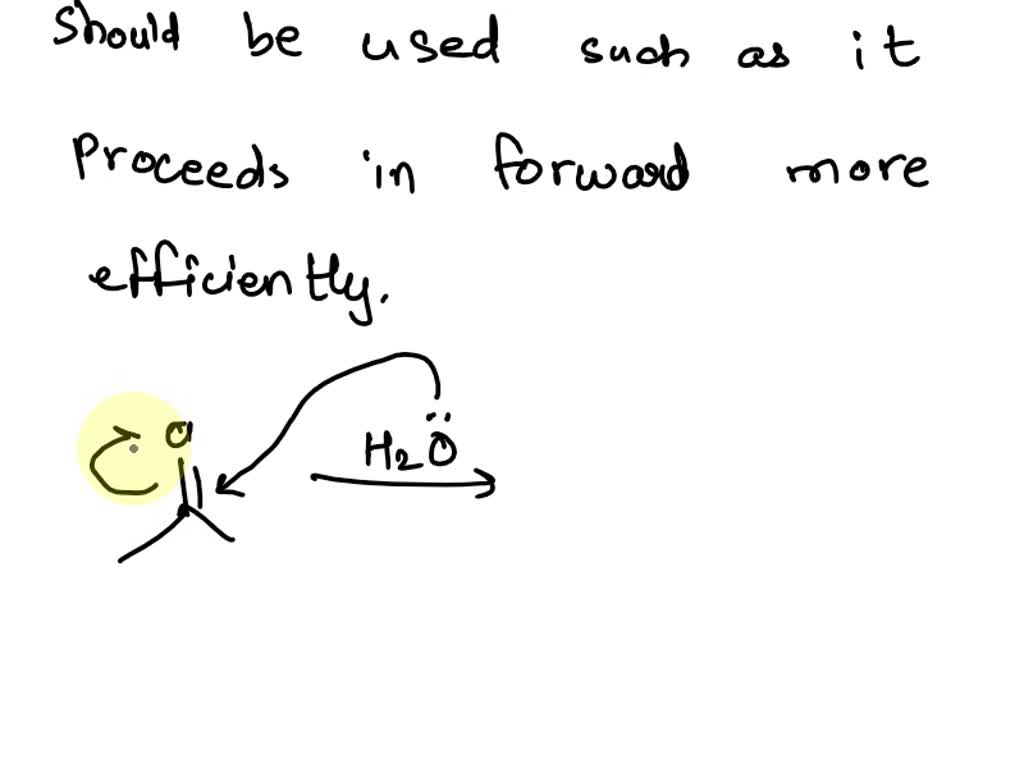 should be used such as it
proceeds in forward more
efficiently.
O
H2O